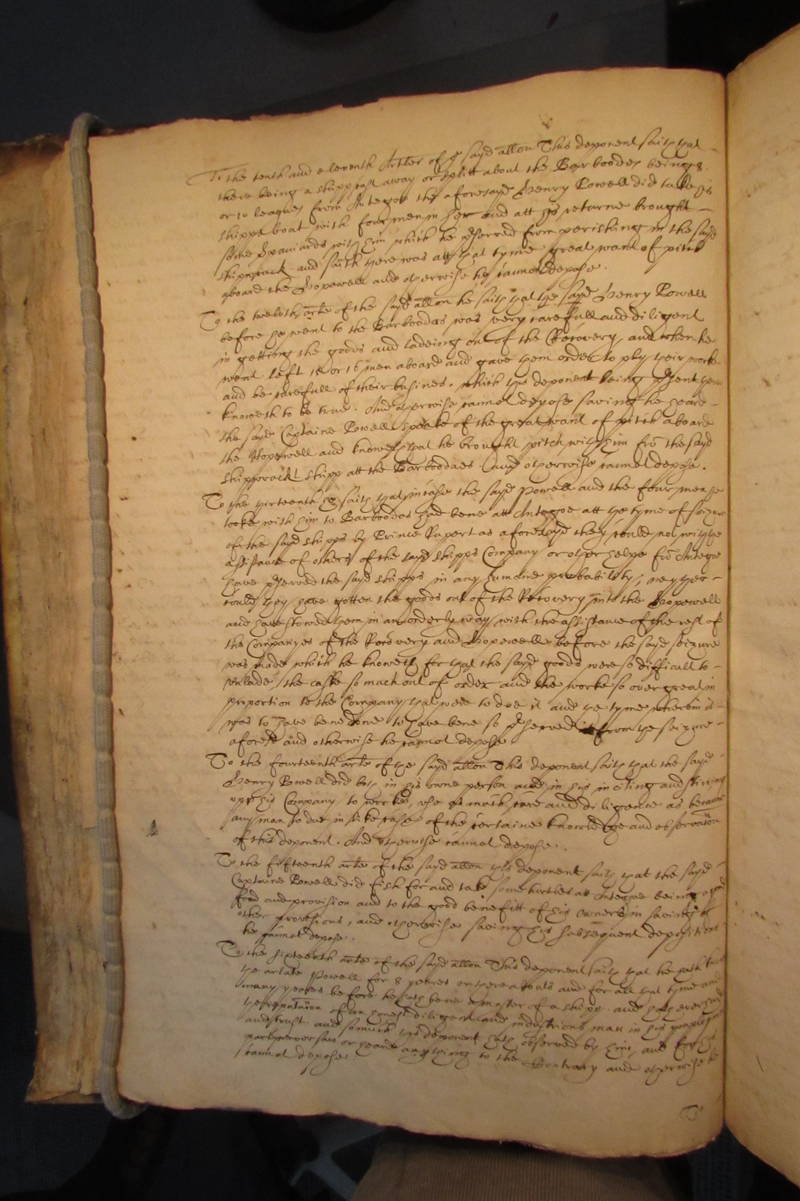 To the tenth and eleventh Artles of the sayd allon This deponent saith that
there being a shipp cast away or splitt about the Barboodes being 8
or 10 leagues from Antegoe the aforesayd Henry Powell did take the
shipps boat with four men in her and att his returne brought
some Spaniards with him which he pserved from perishing in the sayd
shipwrack and saith there was att that tyme great want of pitch
aboard the Hopewell and otherwise he cannot depose.
To the twelvth arte of the sayd allon he saith that the sayd Henry Powell
before he went to the Barboodas was very carefull and diligent
in getting the goods and ladeing out of the Recovery, and when he
went left 15 or 16 men aboard and gave them order to ply their worke
and be carefull of their busines. which this deponent being psent
knoweth to be true. And otherwise cannot depose saving he heard
the sayd Captaine Powell speake of the great want of pitch aboard
the Hopewell and knoweth that he brought pitch with him fro the sayd
shippwrackt shipp att the Barboodaes and otherwise cannot depose.
To the thirteenth he saith that in case the sayd Powell and the four men he
tooke with him to Barboodas had bene att Antegoe att the tyme of seizure
of the sayd shipps by Prince Rupert as aforesayd they could not without
assistance of others of the sayd shipps Company or other helpe fro Antego
have pserved the said shipps in any humane probability, neyther
could they have gotten the goods out of the Recovery into the Hopewell
and have stowed them in an orderly way with the assistance of the rest of
the Companyes of the Recovery and Hopewell before the sayd seizure
was made which he knoweth for that the sayd goods were so difficult to
unlade, the caske so much out of order and the worke so over great in
proportion to the Company that were to doe it and the tyme wherein it
was to have bene done to have bene so pserved from the seizure
aforesd and otherwise he cannot depose
To the fourteenth arte of the sayd allon This deponent saith that the sayd
Henry Powell did both in his owne person and in his inciting and stirring
upp his Company to worke, use as much care and diligence as became
any man to doe in such case of the certaine knowledge and observation
of this deponent. And otherwise cannot depose.
To the fifteenth arte of the sayd allon this deponent saith that the sayd
Captaine Powell did fish for and take some turtles att Antegoe being good
food and provision and to the good benefitt of his owners in saving of
other provisions, and otherwise saving his subsequent deposition
he cannot depose.
To the sixteenth arte of the sayd allon This deponent saith that he hath knowne
the arlate Powell for 8 yeares or thereabouts and for all that tyme and
many yeares before he hath bene a master of a shipp. and hath ever had
the reputation of an honest diligent and industrious man in his place
and trust and so much this deponent hath observed by him, and for his
part never saw or heard any thing to the contrary and otherwise he
cannot depose
To